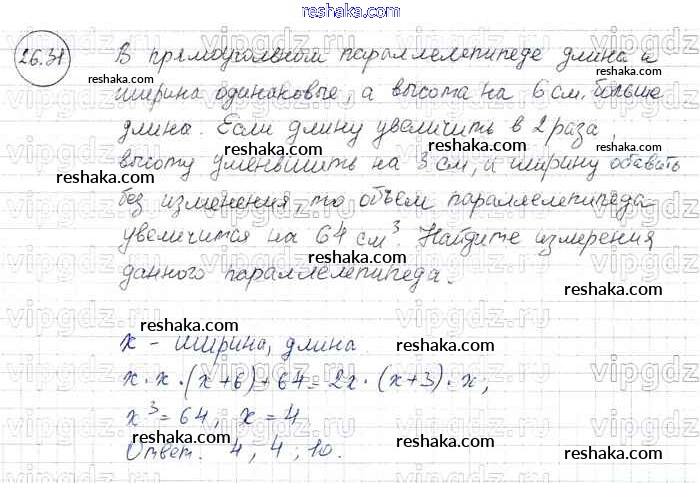 reshaka.com
26.31 В прямоугольном параллелепипеде длина и
reshaka.com reshaka.com
ширина одинаковые, а высота на 6 см. больше
длина. Если длину увеличить в 2 раза,
reshaka.com
высоту уменьшить на 3 см, и ширину
reshaka.com reshaka.com
без изменения, то объем параллелепипеда
увеличится на 64 см³. Найдите измерения
reshaka.com
данного параллелепипеда.
reshaka.com
reshaka.com
x - ширина, длина.
reshaka.com
x · x · (x+6) + 64 = 2x · (x+3) · x,
reshaka.com
x³ = 64, x = 4
reshaka.com
Ответ. 4, 4, 10.
reshaka.com